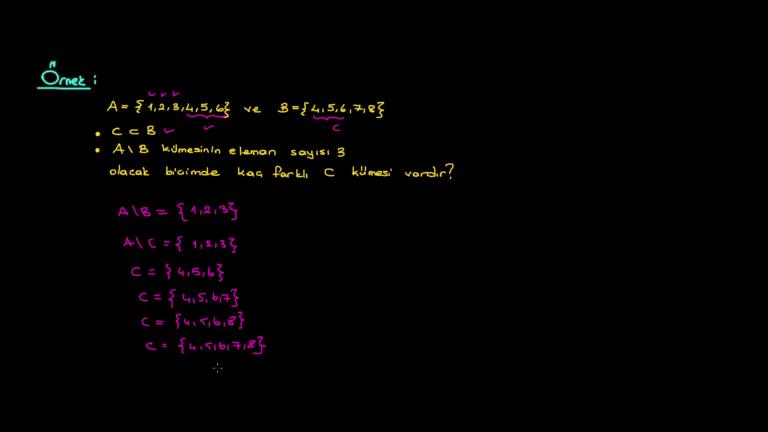 Örnek:
A = {1,2,3,4,5,6} ve B = {4,5,6,7,8}
C
• C ⊂ B
• A\B kümesinin eleman sayısı 3
olacak biçimde kaç farklı C kümesi vardır?
A\B = {1,2,3}
A\C = {1,2,3}
C = {4,5,6}
C = {4,5,6,7}
C = {4,5,6,8}
C = {4,5,6,7,8}